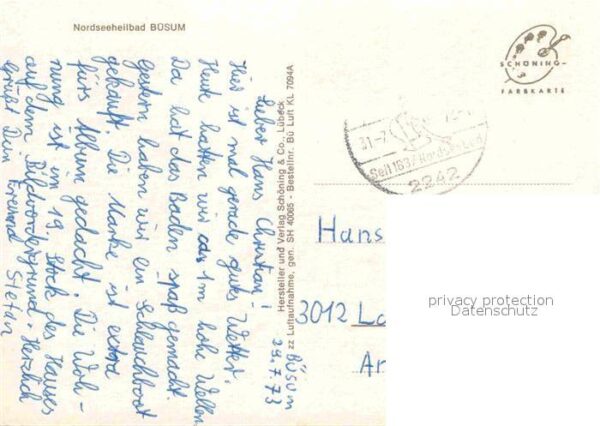 Nordseeheilbad BÜSUM
SCHÖNING-
FARBKARTE
Hersteller und Verlag Schöning & Co., Lübeck
zz Luftaufnahme, gen. SH 40065 - Bestellnr. Bü Luft KL 7094A
BÜSUM
29.7.73
Lieber Hans Christian!
Hier ist mal gerade gutes Wetter.
Heute hatten wir 1m hohe Wellen.
Da hat das Baden spaß gemacht.
Gestern haben wir ein Schlauchboot
gekauft. Die Marke ist extra
fürs Album gedacht. Die Woh-
nung ist im 19. Stock des Hauses
auf dem Bildvordergrund. Herzlich
grüßt Dein Freund Stefan
31-7
2242
Hans
3012 La
Ar
privacy protection
Datenschutz